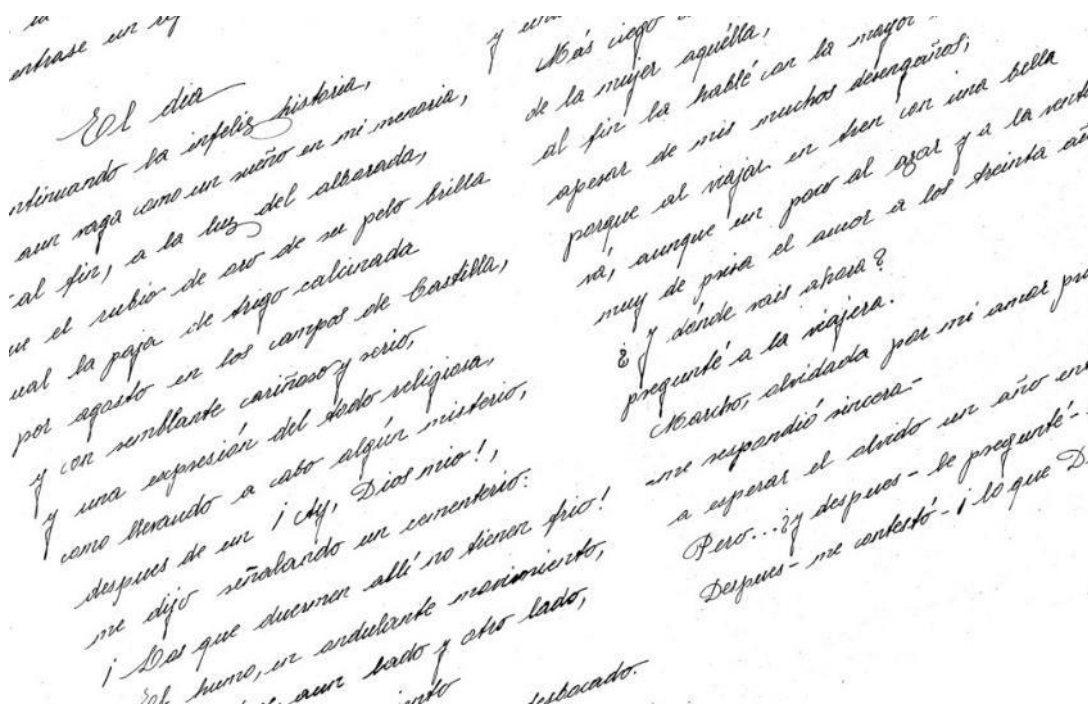 la
entrase un
El dia
ntinuando la infeliz historia,
aun vaga como un sueño en mi memoria,
al fin, a la luz del alborada,
ue el rubio de oro de su pelo brilla
ual la paja de trigo calcinada
por agosto en los campos de Castilla,
y con semblante cariñoso y serio,
y una expresión del todo religiosa,
como llevando a cabo algún misterio,
despues de un ¡Ay, Dios mio!,
me dijo señalando un cementerio:
¡Los que duermen allí no tienen frio!
El humo, en ondulante movimiento,
aun lado y otro lado,
iento
desbocado.
y una
Más ciego
de la mujer aquélla,
al fin la hablé con la mayor
apesar de mis muchos desengaños;
porque al viajar en tren con una bella
vá, aunque un poco al azar y a la venta
muy de prisa el amor a los treinta añ
¿y dónde vais ahora?
pregunté a la viajera.
Marcho, olvidada por mi amor pri
-me respondió sincera-
a esperar el olvido un año en
Pero...¿y despues- le pregunté-
Despues- me contestó- ¡lo que D